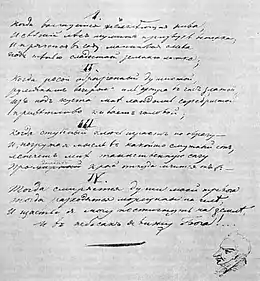 I.
Когда волнуется желтеющая нива
И свежий лѣсъ шумитъ при звукѣ вѣтерка,
И прячется въ саду малиновая слива
Подъ тѣнью сладостной зеленаго листка;
II.
Когда росой обрызганный душистой
Румянымъ вечеромъ иль утра въ часъ златой
Изъ подъ куста мнѣ ландышъ серебристой
Привѣтливо киваетъ головой;
III.
Когда студеный ключъ играетъ по оврагу
И погружая мысль въ какой-то смутный сонъ
Лепечетъ мнѣ таинственную сагу
край откуда мчится онъ:
IV.
Тогда смиряется души моей тревога
Тогда расходятся морщины на челѣ
И счастье я могу постигнуть на землѣ
И въ небесахъ я вижу бога!...